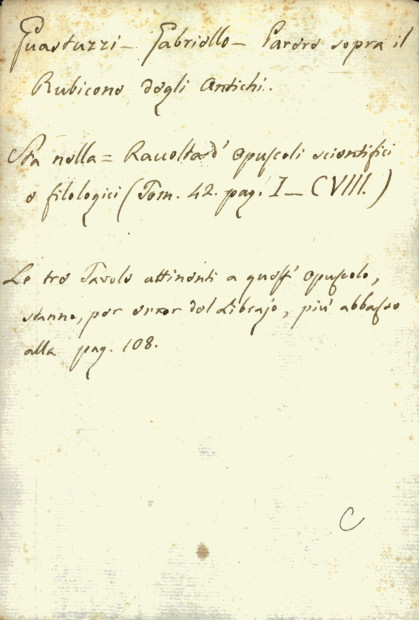 Guastuzzi - Gabriello - Parere sopra il
Rubicone degli Antichi.
Sta nella = Raccolta d' Opuscoli scientifici
e filologici (Tom. 42. pag. I - CVIII.)
Le tre Tavole attinenti a quest' Opuscolo,
stanno, per error del Librajo, più abbasso
alla pag. 108.
C